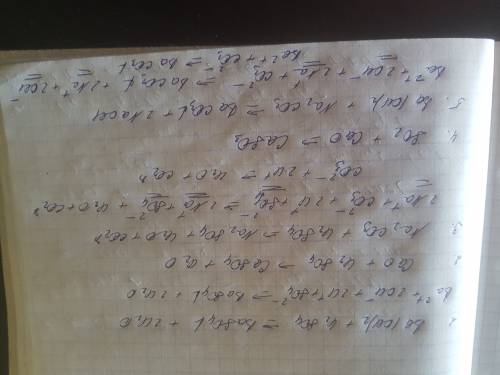 1. Ba(OH)₂ + H₂SO₄ ⇒ BaSO₄↓ + 2H₂O
Ba²⁺ + 2OH⁻ + 2H⁺ + SO₄²⁻ ⇒ BaSO₄↓ + 2H₂O
2. CaO + H₂SO₄ ⇒ CaSO₄ + H₂O
3. Na₂CO₃ + H₂SO₄ ⇒ Na₂SO₄ + H₂O + CO₂↑
2Na⁺ + CO₃²⁻ + 2H⁺ + SO₄²⁻ ⇒ 2Na⁺ + SO₄²⁻ + H₂O + CO₂↑
CO₃²⁻ + 2H⁺ ⇒ H₂O + CO₂↑
4. SO₂ + CaO ⇒ CaSO₃
5. Ba(OH)₂ + Na₂CO₃ ⇒ BaCO₃↓ + 2NaOH
Ba²⁺ + 2OH⁻ + 2Na⁺ + CO₃²⁻ ⇒ BaCO₃↓ + 2Na⁺ + 2OH⁻
Ba²⁺ + CO₃²⁻ ⇒ BaCO₃↓